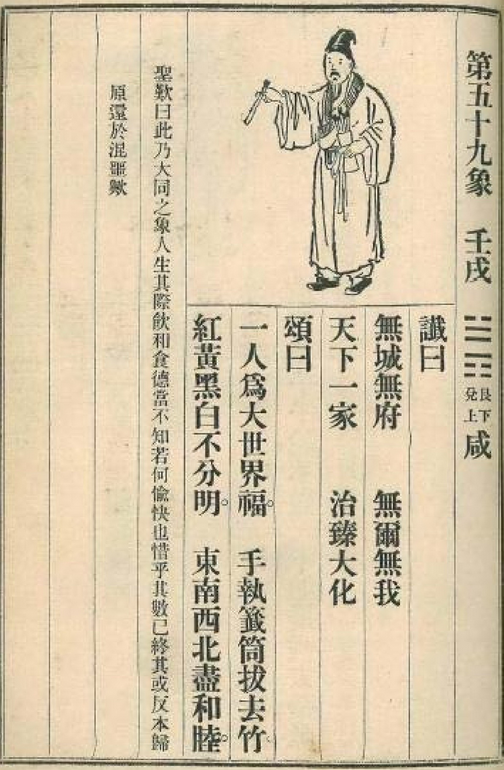 第五十九象 壬戌 ䷞ 艮下兌上 咸
讖曰
無城無府 無爾無我
天下一家 治臻大化
頌曰
一人爲大世界福。 手執籤筒拔去竹
紅黃黑白不分明。 東南西北盡和睦。
聖歎曰此乃大同之象人生其際飲和食德當不知若何愉快也惜乎其數已終其或反本歸
原還於混噩歟